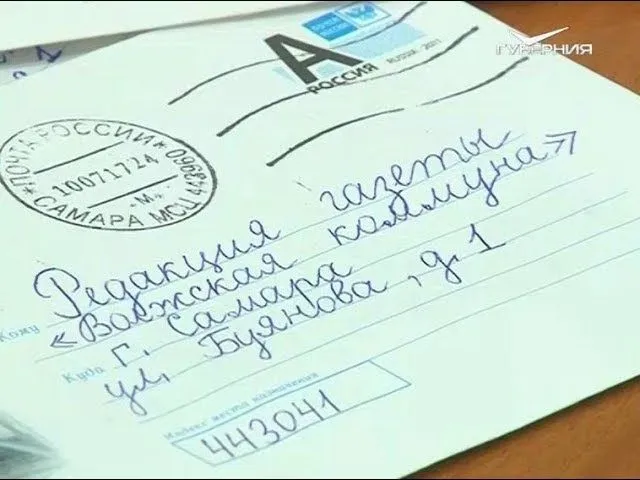 ГУБЕРНИЯ
ПОЧТА РОССИИ
А
РОССИЯ RUSSIA · 2011
*ПОЧТА РОССИИ*
1007 17 24
-М-
САМАРА МСЦ 443960
Редакция газеты
Кому «Волжская коммуна»
г. Самара
Куда ул. Буянова, д. 1
Индекс места назначения
443041